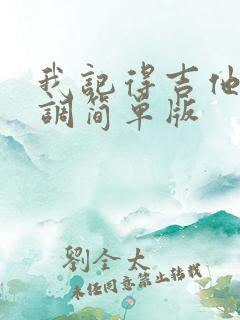 我記得吉他
調简单版
劉全太
未经同意禁止转载